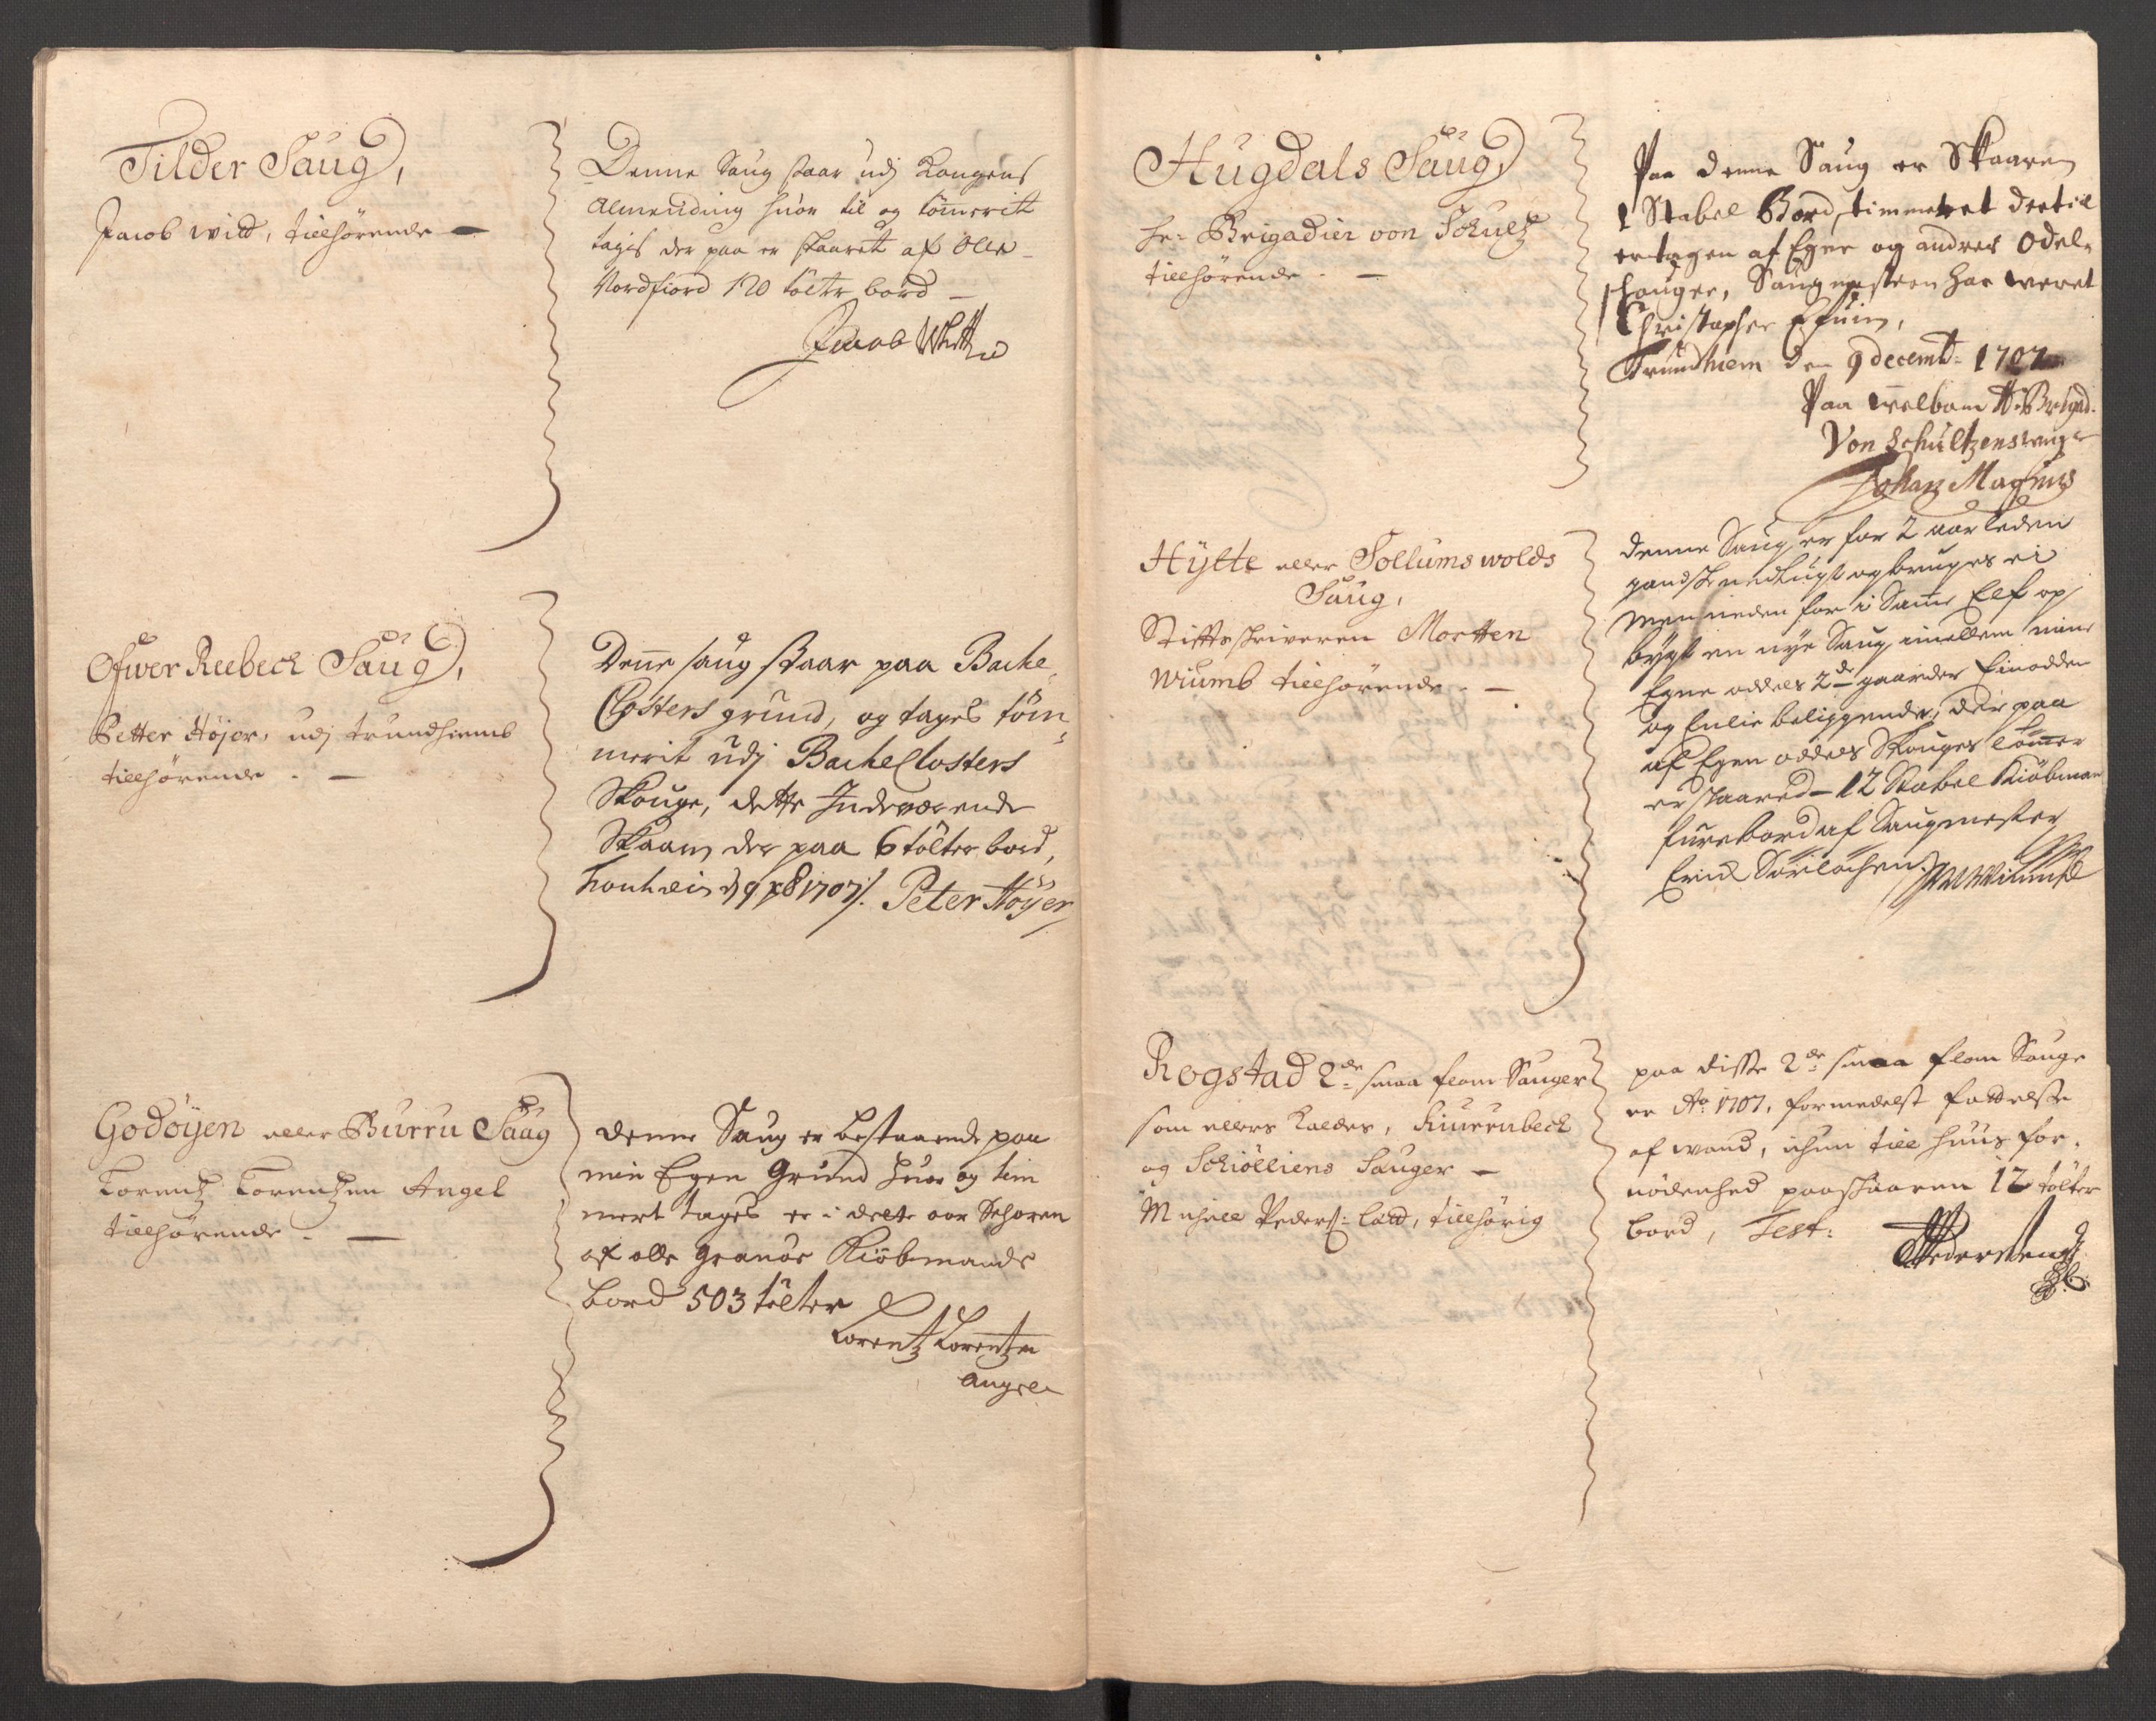 Tilder Saug,
Jacob Wild, tilhørende —
Denne Saug staar udj Kongens
Almending huor til og tømmerit
tages der paa er skaarett af Olle
Nordfiord 120 tölter bord —
Jacob
Ofwer Reebeck Saug,
Petter Höjer, udj trundhiemb
tilhørende . —
Denne saug staar paa Backe
Closters grund, og tages töm
merit udj Backe Closters
Skouge, dette Indeværende
Skaaren der paa 6 tölter bord,
1707 Peter Höyer
Godöyen eller Burru Saug
Lorentz Lorentzen Angel
tilhörende . —
Denne Saug er bestaaende paa
min Egen Grund huor og tim
mert tages er i dette aar
af olle Granöe Kiöbmands
bord 503 tölter
Lorentz Lorentzen
Angell
Hugdals Saug
hr: Brigadier von Schultz
tilhørende . —
Paa denne Saug er Skaaren
1 Stabel Bord, timmeret dertil
er tagen af Egne og andres Odel
skouger, Saugmesteren har weret
Christopher
Trundhiem den 9 decemb: 1707
Paa welbaarne Hr Brigad.
Von Schultzens wegne
Johan Magnus
Hÿtte eller Sollumswolds
Saug,
Stifftsskriveren Morten
Wiumb tilhørende . —
Denne Saug er for 2 aar siden
gandske nedlagt og bruges ei
men neden for i Samme Elf op
bygt en nye Saug imellem mine
Egne oddels 2de gaarder Einodden
og Enlie beliggende, der paa
af Egen oddels Skouges tömmer
er skaared — 12 Stabel Kiöbman
furebord af Saugmester
Erich
Rogstad 2de smaa flom Sauger
som ellers kaldes, Kiurrubeck
og Schiölliens Sauger —
Michell Peders: tilhørig
paa disse 2de smaa flom Sauge
er Ao 1707, formedelst fattelse
af wand, ichun till huus for,
nödenhed paaskaaren 12 tölter
bord, Test: